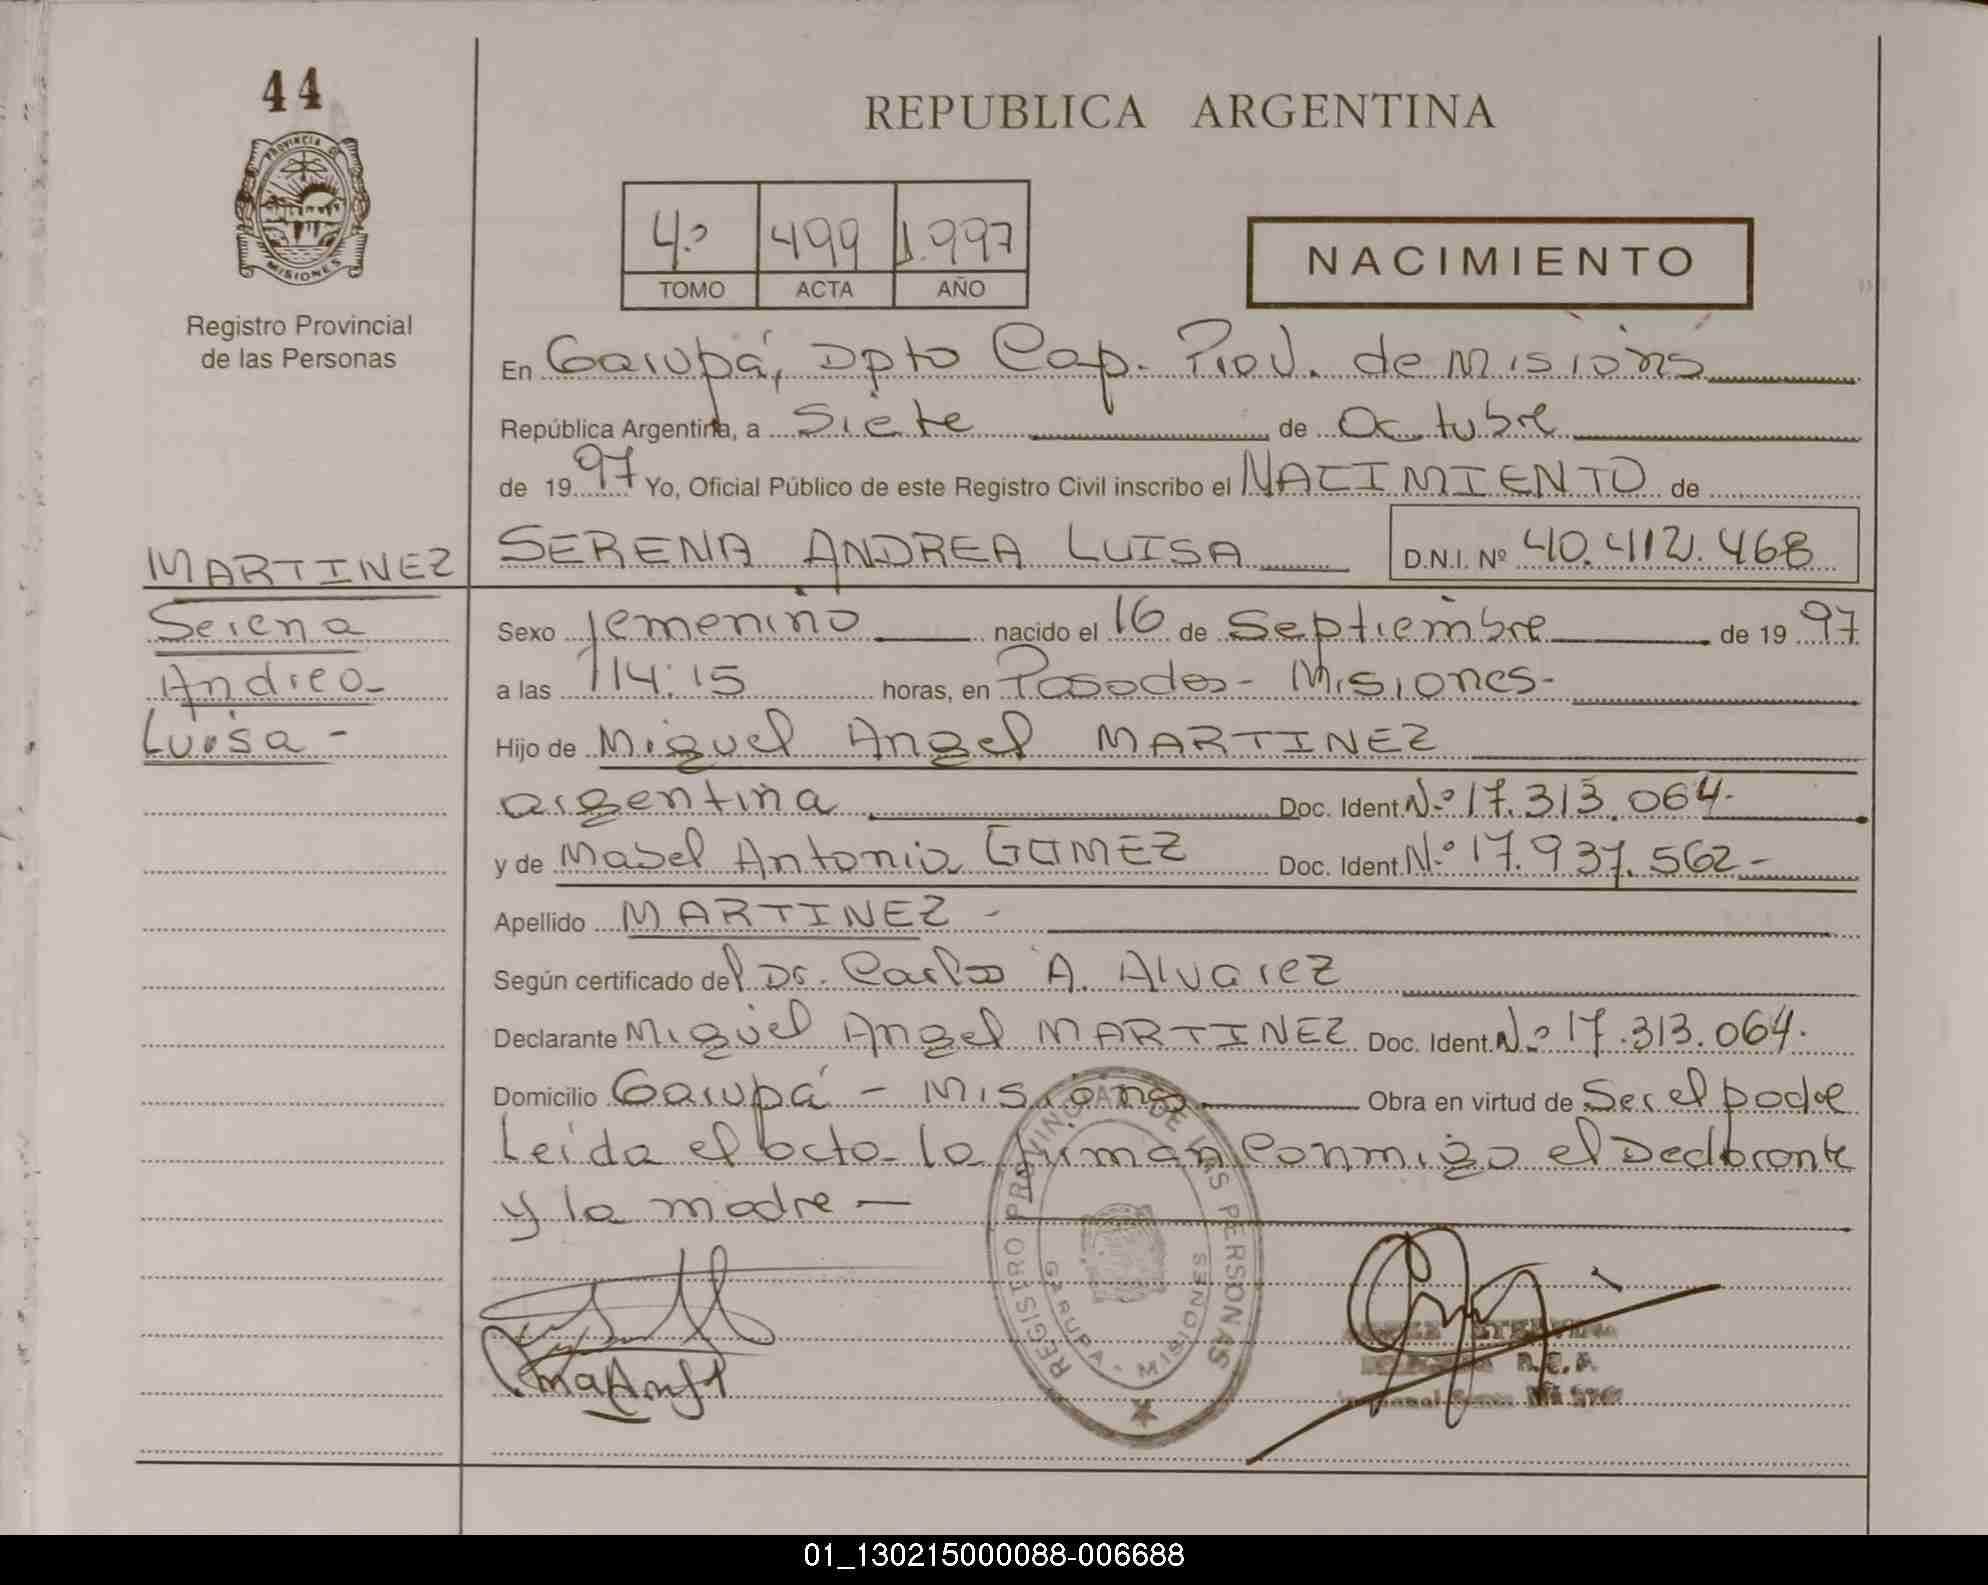 44
PROVINCIA DE
MISIONES
Registro Provincial
de las Personas
MARTINEZ
Serena
Andrea
Luisa -
REPUBLICA ARGENTINA
4º 499 1.997
TOMO ACTA AÑO
NACIMIENTO
En Garupá, Dpto Cap. Prov. de Misions
República Argentina, a Siete de Octubre
de 1997 Yo, Oficial Público de este Registro Civil inscribo el NACIMIENTO de
SERENA ANDREA LUISA D.N.I. Nº 40.412.468
Sexo femenino nacido el 16 de Septiembre de 1997
a las 14:15 horas, en Posadas - Misiones -
Hijo de Miguel Angel MARTINEZ
argentina Doc. Ident. Nº 17.313.064-
y de Mabel Antonia GOMEZ Doc. Ident. Nº 17.937.562-
Apellido MARTINEZ -
Según certificado del Dr. Carlos A. Alvarez
Declarante Miguel Angel MARTINEZ Doc. Ident. Nº 17.313.064.
Domicilio Garupá - Misions Obra en virtud de Ser el padre
Leida el acta la firman conmigo el Declarante
y la madre —
REGISTRO PROVINCIAL DE LAS PERSONAS
GARUPA - MISIONES
01_130215000088-006688